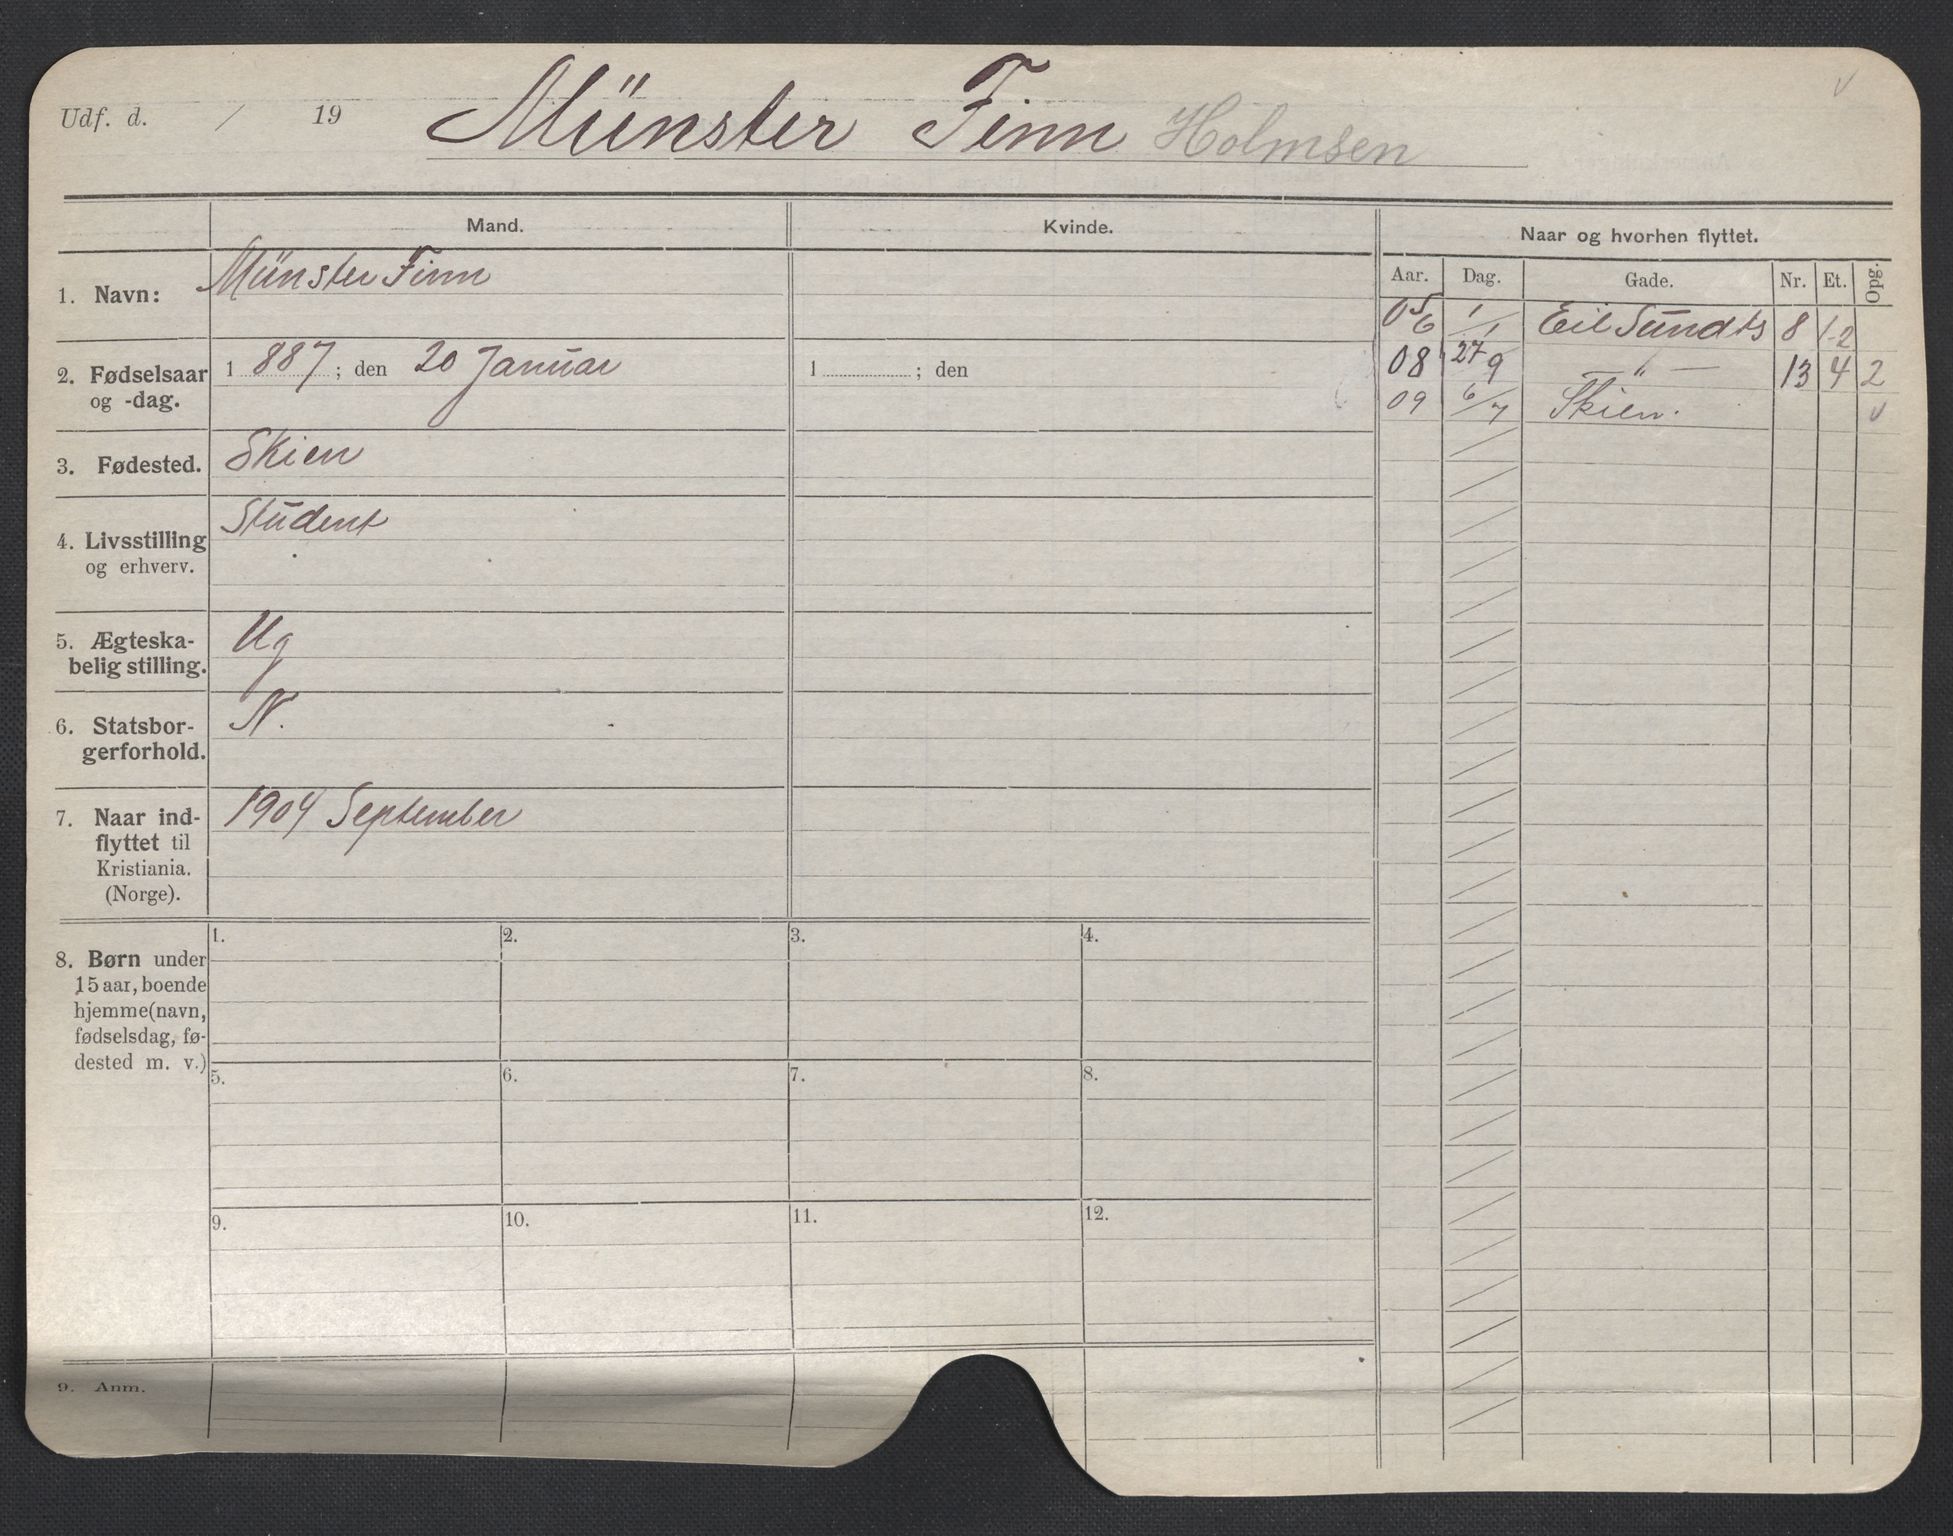 Udf. d. / 19
Münster Finn Holmsen
Mand.
Kvinde.
Naar og hvorhen flyttet.
Aar. Dag. Gade. Nr. Et. Opg.
1. Navn: Münster Finn
2. Fødselsaar og -dag. 1 887 ; den 20 Januar
1 ; den
3. Fødested. Skien
4. Livsstilling og erhverv. Student
5. Ægteska-
belig stilling. Ug
6. Statsbor-
gerforhold. N.
7. Naar ind-
flyttet til
Kristiania.
(Norge). 1904 September
05/6 1/1 Eil Sundts 8 1-2
08 27/9 — " — 13 4 2
09 6/7 Skien.
8. Børn under
15 aar, boende
hjemme (navn,
fødselsdag, fø-
dested m. v.)
1. 2. 3. 4.
5. 6. 7. 8.
9. 10. 11. 12.
9. Anm.